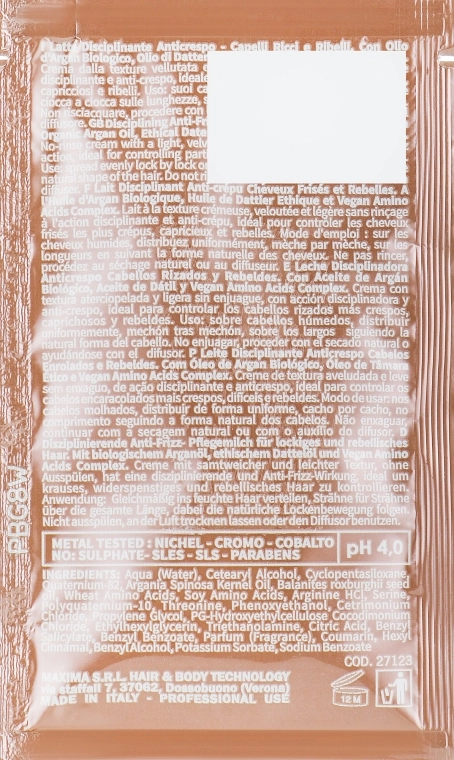 I Latte Disciplinante Anticrespo - Capelli Ricci e Ribelli. Con Olio
d'Argan Biologico, Olio di Datter
Crema dalla texture vellutata e
disciplinante e anti-crespo, ideale
capricciosi e ribelli. Uso: suoi ca
ciocca a ciocca sulle lunghezze, s
Non risciacquare, procedere con
diffusore. GB Disciplining Anti-Fr
Organic Argan Oil, Ethical Date
No-rinse cream with a light, velv
action, ideal for controlling part
Use: spread evenly lock by lock on
natural shape of the hair. Do not r
diffuser. F Lait Disciplinant Anti-crépu Cheveux Frisés et Rebelles. A
L'Huile d'Argan Biologique, Huile de Dattier Ethique et Vegan Amino
Acids Complex. Lait à la texture crémeuse, veloutée et légère sans rinçage
à l'action disciplinante et anti-crépu, idéal pour contrôler les cheveux
frisés les plus crépus, capricieux et rebelles. Mode d'emploi : sur les
cheveux humides, distribuez uniformément, mèche par mèche, sur les
longueurs en suivant la forme naturelle des cheveux. Ne pas rincer,
procédez au séchage naturel ou au diffuseur. E Leche Disciplinadora
Anticrespo Cabellos Rizados y Rebeldes. Con Aceite de Argán
Biológico, Aceite de Dátil y Vegan Amino Acids Complex. Crema con
textura aterciopelada y ligera sin enjuague, con acción disciplinadora y
anti-crespo, ideal para controlar los cabellos rizados más crespos,
caprichosos y rebeldes. Uso: sobre cabellos húmedos, distribuir
uniformemente, mechón tras mechón, sobre los largos siguiendo la
natural forma del cabello. No enjuagar, proceder con el secado natural o
ayudándose con el difusor. P Leite Disciplinante Anticrespo Cabelos
Enrolados e Rebeldes. Com Óleo de Argan Biológico, Óleo de Tâmara
Ético e Vegan Amino Acids Complex. Creme de textura aveludada e leve
sem enxague, de ação disciplinante e anticrespo, ideal para controlar os
cabelos encaracolados mais crespos, difíceis e rebeldes. Modo de usar: nos
cabelos molhados, distribuir de forma uniforme, cacho por cacho, no
comprimento seguindo a forma natural dos cabelos. Não enxaguar,
continuar com a secagem natural ou com o auxílio do difusor. D
Disziplinierende Anti-Frizz- Pflegemilch für lockiges und rebellisches
Haar. Mit biologischem Arganöl, ethischem Dattelöl und Vegan Amino
Acids Complex. Creme mit samtweicher und leichter Textur, ohne
Ausspülen, hat eine disziplinierende und Anti-Frizz-Wirkung, ideal um
krauses, widerspenstiges und rebellisches Haar zu kontrollieren.
Anwendung: Gleichmäßig ins feuchte Haar verteilen, Strähne für Strähne
über die gesamte Länge, dabei die natürliche Lockenbewegung folgen.
Nicht ausspülen, an der Luft trocknen lassen oder den Diffusor benutzen.
METAL TESTED : NICHEL - CROMO - COBALTO
NO: SULPHATE- SLES - SLS - PARABENS
pH 4,0
INGREDIENTS: Aqua (Water), Cetearyl Alcohol, Cyclopentasiloxane,
Quaternium-82, Argania Spinosa Kernel Oil, Balanites roxburghii seed
oil, Wheat Amino Acids, Soy Amino Acids, Arginine HCl, Serine,
Polyquaternium-10, Threonine, Phenoxyethanol, Cetrimonium
Chloride, Propylene Glycol, PG-Hydroxyethylcellulose Cocodimonium
Chloride, Ethylhexylglycerin, Triethanolamine, Citric Acid, Benzyl
Salicylate, Benzyl Benzoate, Parfum (Fragrance), Coumarin, Hexyl
Cinnamal, Benzyl Alcohol, Potassium Sorbate, Sodium Benzoate
COD. 27123
MAXIMA S.R.L. HAIR & BODY TECHNOLOGY
via staffali 7, 37062, Dossobuono (Verona)
MADE IN ITALY - PROFESSIONAL USE
12 M
PBG8W